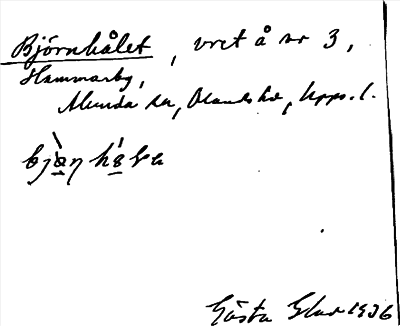 Björnhålet, vret å nr 3,
Hammarby,
Almunda sn, Olands hd, Upps. l.
Gösta Glad 1936